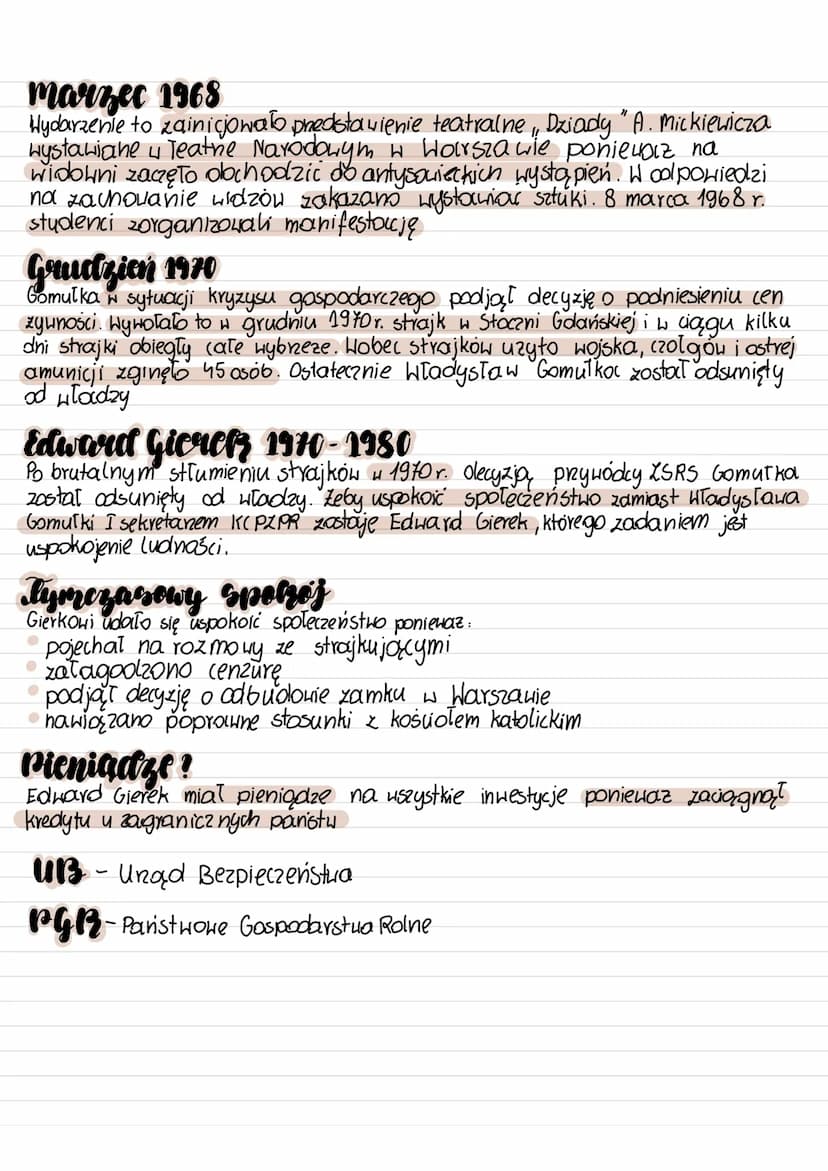 Marzec 1968
Wydarzenie to zainicjowało przedstawienie teatralne „Dziady" A. Mickiewicza
wystawiane w Teatrze Narodowym w Warszawie ponieważ na
widowni zaczęto dochodzić do antysowieckich wystąpień. W odpowiedzi
na zachowanie widzów zakazano wystawiać sztuki. 8 marca 1968 r.
studenci zorganizowali manifestację
Grudzień 1970
Gomułka w sytuacji kryzysu gospodarczego podjął decyzję o podniesieniu cen
żywności. Wywołało to w grudniu 1970r. strajk w Stoczni Gdańskiej i w ciągu kilku
dni strajki obiegły całe wybrzeże. Wobec strajków użyto wojska, czołgów i ostrej
amunicji zginęło 45 osób. Ostatecznie Władysław Gomułka został odsunięty
od władzy
Edward Gierek 1970-1980
Po brutalnym stłumieniu strajków w 1970r. decyzją przywódcy ZSRS Gomułka
został odsunięty od władzy. Żeby uspokoić społeczeństwo zamiast Władysława
Gomułki I sekretarzem KC PZPR zostaje Edward Gierek, którego zadaniem jest
uspokojenie ludności.
Tymczasowy spokój
Gierkowi udało się uspokoić społeczeństwo ponieważ:
• pojechał na rozmowy ze strajkującymi
• załagodzono cenzurę
• podjął decyzję o odbudowie zamku w Warszawie
• nawiązano poprawne stosunki z kościołem katolickim
Pieniądze?
Edward Gierek miał pieniądze na wszystkie inwestycje ponieważ zaciągnął
kredyty u zagranicznych państw
UB - Urząd Bezpieczeństwa
PGR - Państwowe Gospodarstwa Rolne